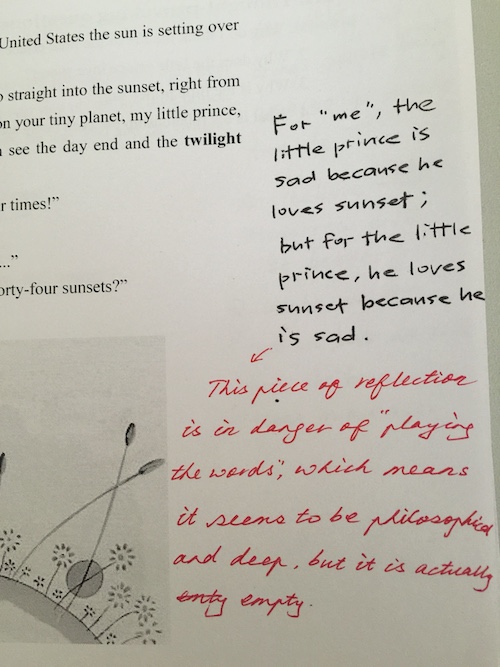 United States the sun is setting over
straight into the sunset, right from
on your tiny planet, my little prince,
see the day end and the twilight
r times!”
...”
orty-four sunsets?”
For "me", the
little prince is
sad because he
loves sunset;
but for the little
prince, he loves
sunset because he
is sad.
This piece of reflection
is in danger of "playing
the words", which means
it seems to be philosophical
and deep, but it is actually
emty empty.